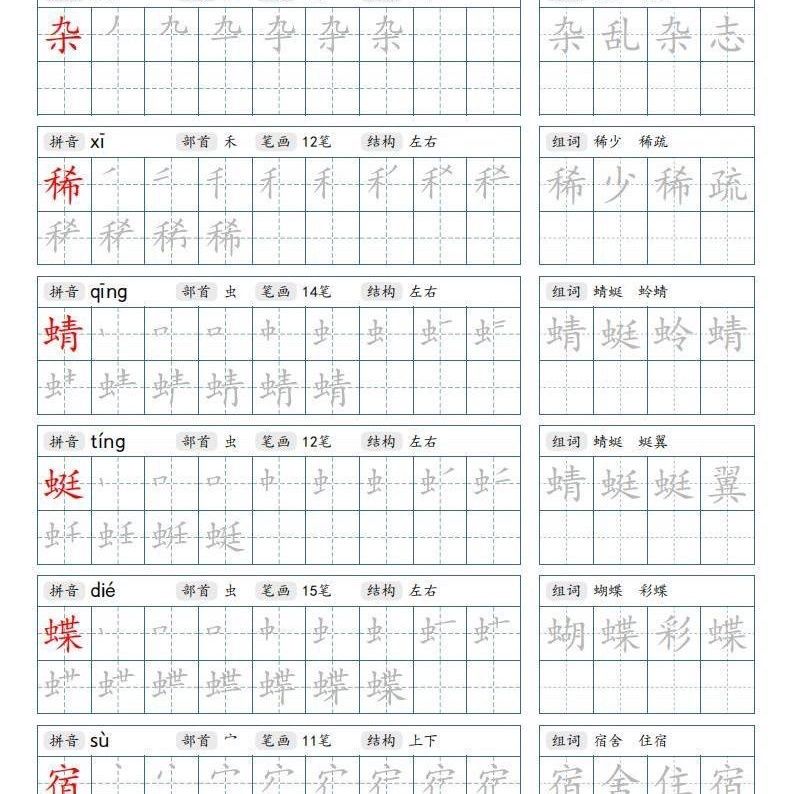 杂 杂乱杂志
拼音 xī 部首 禾 笔画 12笔 结构 左右 组词 稀少 稀疏
稀 稀少稀疏
稀
拼音 qīng 部首 虫 笔画 14笔 结构 左右 组词 蜻蜓 蛉蜻
蜻 蜻蜓蛉蜻
蜻
拼音 tíng 部首 虫 笔画 12笔 结构 左右 组词 蜻蜓 蜓翼
蜓 蜻蜓蜓翼
蜓
拼音 dié 部首 虫 笔画 15笔 结构 左右 组词 蝴蝶 彩蝶
蝶 蝴蝶彩蝶
蝶
拼音 sù 部首 宀 笔画 11笔 结构 上下 组词 宿舍 住宿
宿 宿舍住宿